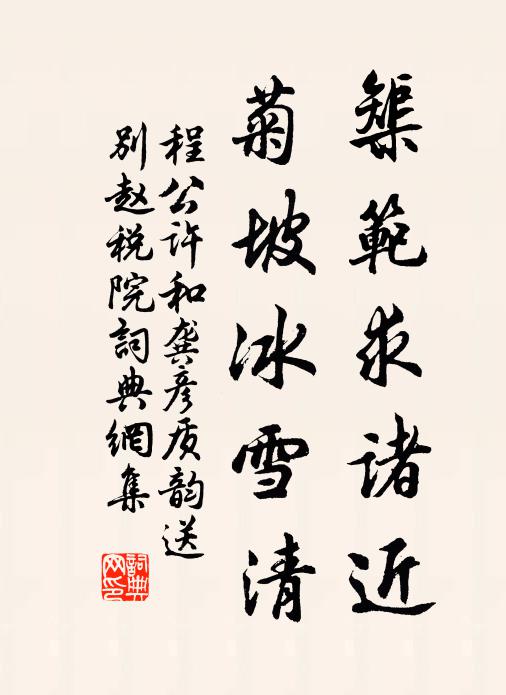 榘範求诸近
菊坡冰雪清
程公许和龚彦质韵送
别赵税院詞典網集
詞典网印